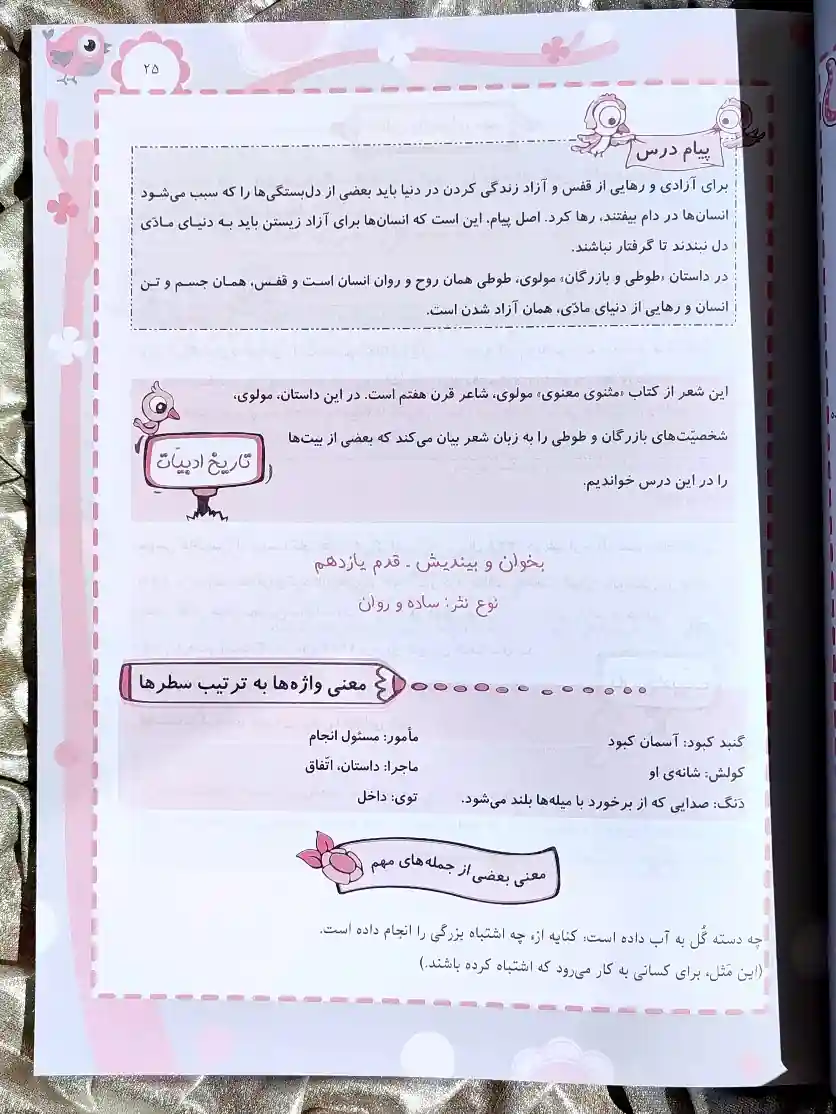 ۲۵
پیام درس
برای آزادی و رهایی از قفس و آزاد زندگی کردن در دنیا باید بعضی از دل‌بستگی‌ها را که سبب می‌شود
انسان‌ها در دام بیفتند، رها کرد. اصل پیام، این است که انسان‌ها برای آزاد زیستن باید به دنیای مادّی
دل نبندند تا گرفتار نباشند.
در داستان «طوطی و بازرگان» مولوی، طوطی همان روح و روان انسان است و قفس، همان جسم و تن
انسان و رهایی از دنیای مادّی، همان آزاد شدن است.
این شعر از کتاب «مثنوی معنوی» مولوی، شاعر قرن هفتم است. در این داستان، مولوی،
شخصیّت‌های بازرگان و طوطی را به زبان شعر بیان می‌کند که بعضی از بیت‌ها
را در این درس خواندیم.
تاریخ ادبیّات
بخوان و بیندیش - قدم یازدهم
نوع نثر: ساده و روان
معنی واژه‌ها به ترتیب سطرها
گنبد کبود: آسمان کبود
کولش: شانه‌ی او
دَنگ: صدایی که از برخورد با میله‌ها بلند می‌شود.
مأمور: مسئول انجام
ماجرا: داستان، اتّفاق
توی: داخل
معنی بعضی از جمله‌های مهم
چه دسته گُل به آب داده است: کنایه از، چه اشتباه بزرگی را انجام داده است.
(این مَثل، برای کسانی به کار می‌رود که اشتباه کرده باشند.)